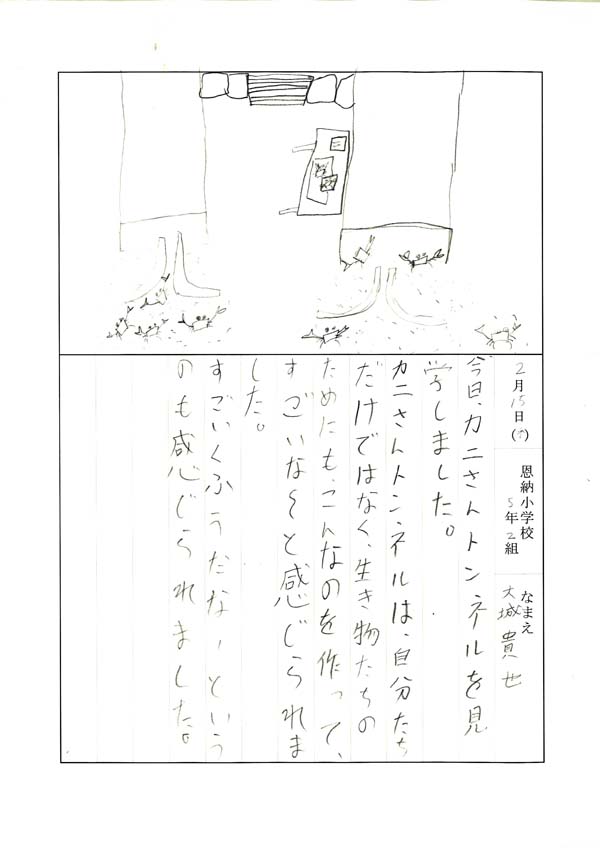 2月15日(土) 恩納小学校 5年2組 なまえ 大城貴也
今日、カニさんトンネルを見
学しました。
カニさんトンネルは、自分たち
だけではなく、生き物たちの
ためにも、こんなのを作って、
すごいな〜と感じられま
した。
すごいくふうだな、という
のも感じられました。